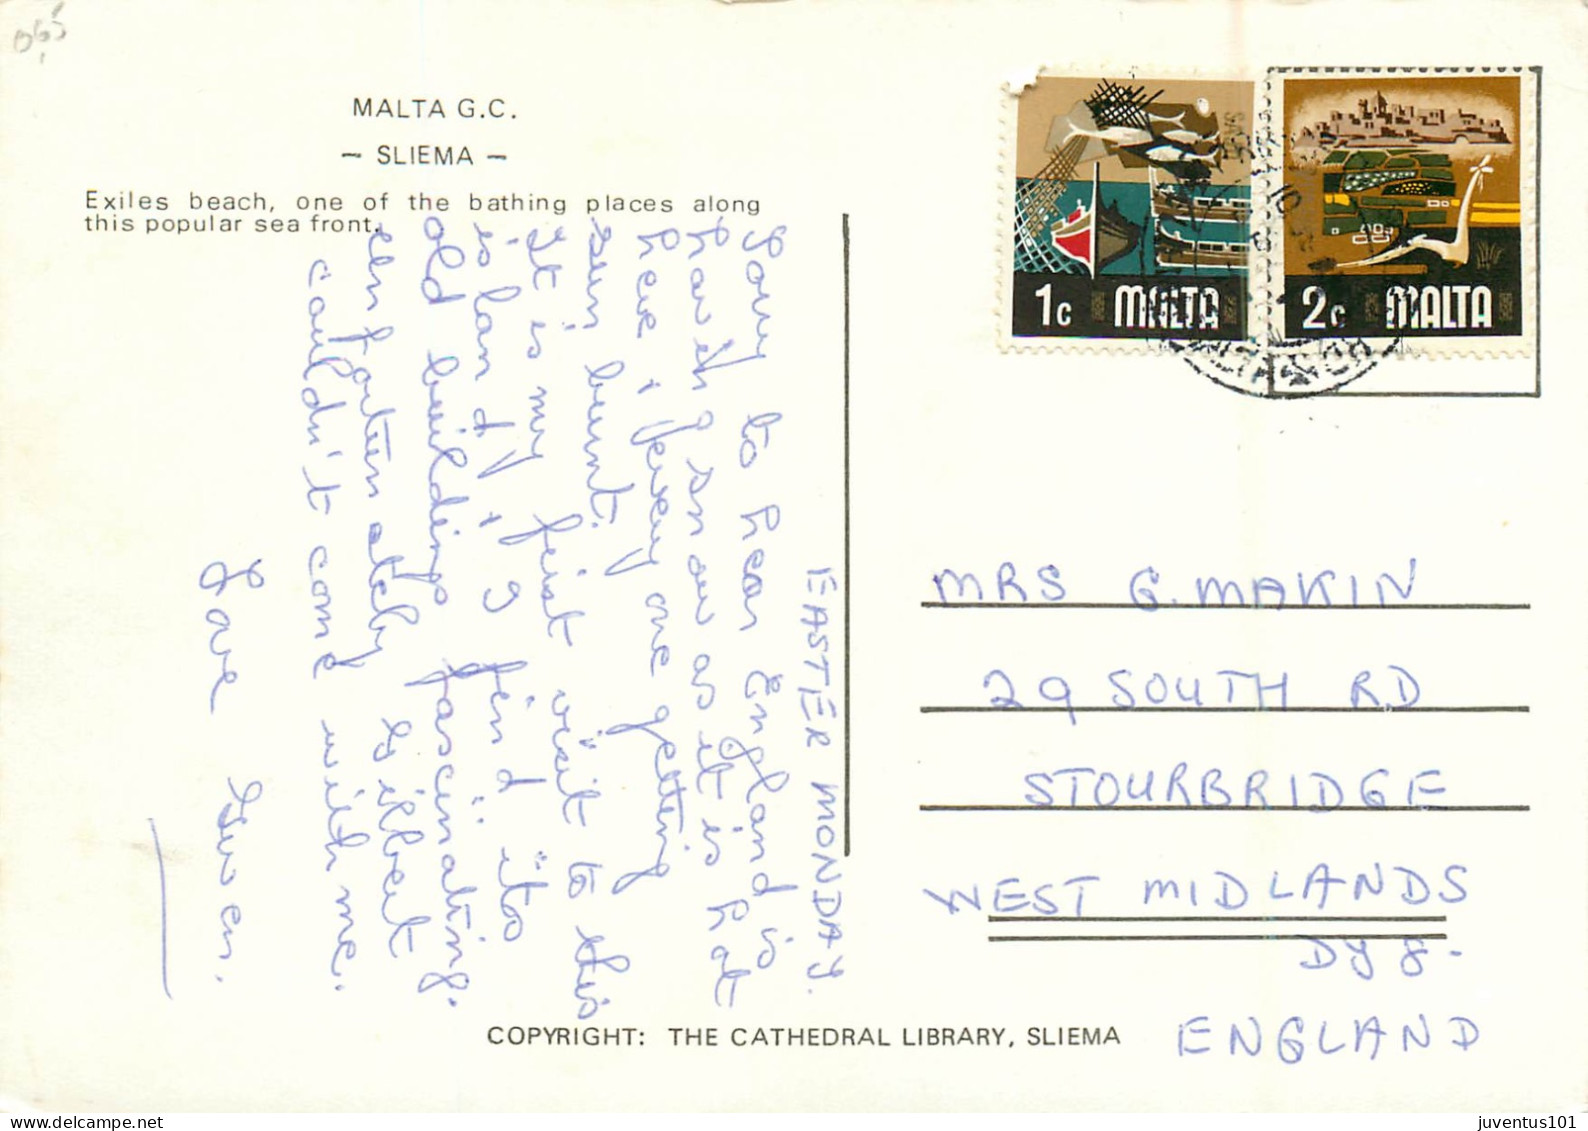 MALTA G.C.
– SLIEMA –
Exiles beach, one of the bathing places along
this popular sea front.
1c MALTA
2c MALTA
EASTER MONDAY.
Sorry to hear England is
having snow as it is hot
here & every one getting
sun burnt.
It is my first visit to this
island, & I find its
old buildings fascinating.
Unfortunately Gilbert
couldn't come with me.
Love Gwen.
MRS G. MAKIN
29 SOUTH RD
STOURBRIDGE
WEST MIDLANDS
DY8.
ENGLAND
COPYRIGHT: THE CATHEDRAL LIBRARY, SLIEMA
juventus101